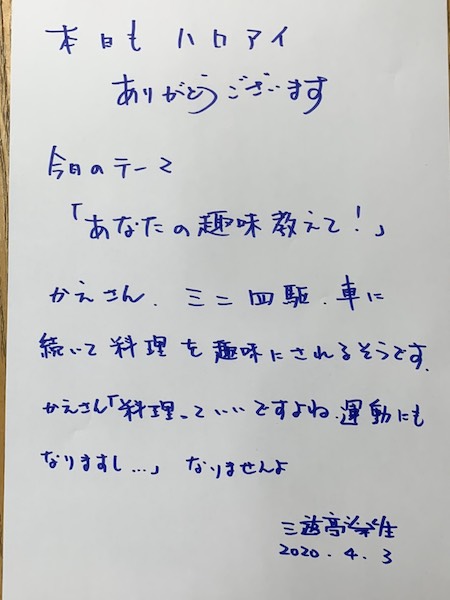 本日も ハロアイ
ありがとうございます
今日のテーマ
「あなたの趣味教えて！」
かえさん、ミニ四駆、車に
続いて料理を趣味にされるそうです。
かえさん「料理っていいですよね、運動にも
なりますし…」 なりませんよ
三遊亭
2020.4.3